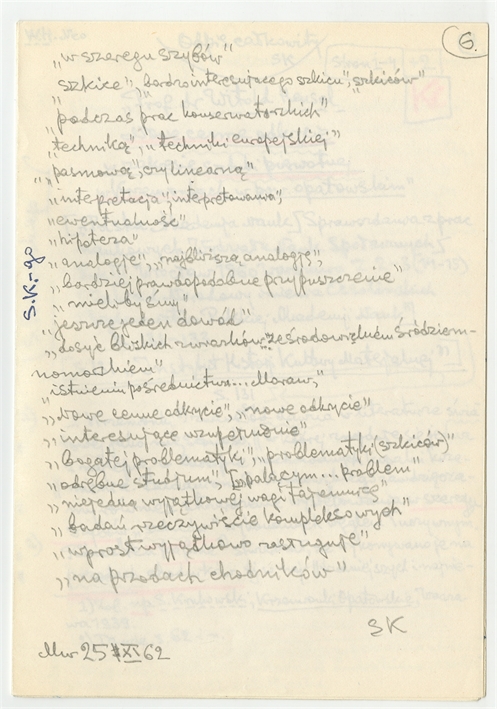 6.
„w szeregu szybów"
„szkice", „bardzo interesującego szkicu", „szkiców"
„podczas prac konserwatorskich"
„techniką", „techniki europejskiej"
„pasmową", czy linearną"
„interpretacja", interpretowania",
„ewentualność"
„hipoteza"
„analogję", „najbliższą analogję",
„bardziej prawdopodobne przypuszczenie"
„mieliby śmy"
„jeszcze jeden dowód"
„dosyć bliskich związków ze środowiskiem śródziem-
nomorskiem"
„istnieniu pośrednictwa... Moraw",
„nowe cenne odkrycie", „nowe odkrycie"
„interesujące uzupełnienie"
„bogatej problematyki", „problematyki (szkiców)"
„odrębne studjum", „palącym... problem"
„niejedną wyjątkowej wagi tajemnicę"
„badań rzeczywiście kompleksowych"
„wprost wyjątkowo zasługuje"
„na przodach chodników"
SK
25 XI 62
S.K.-go